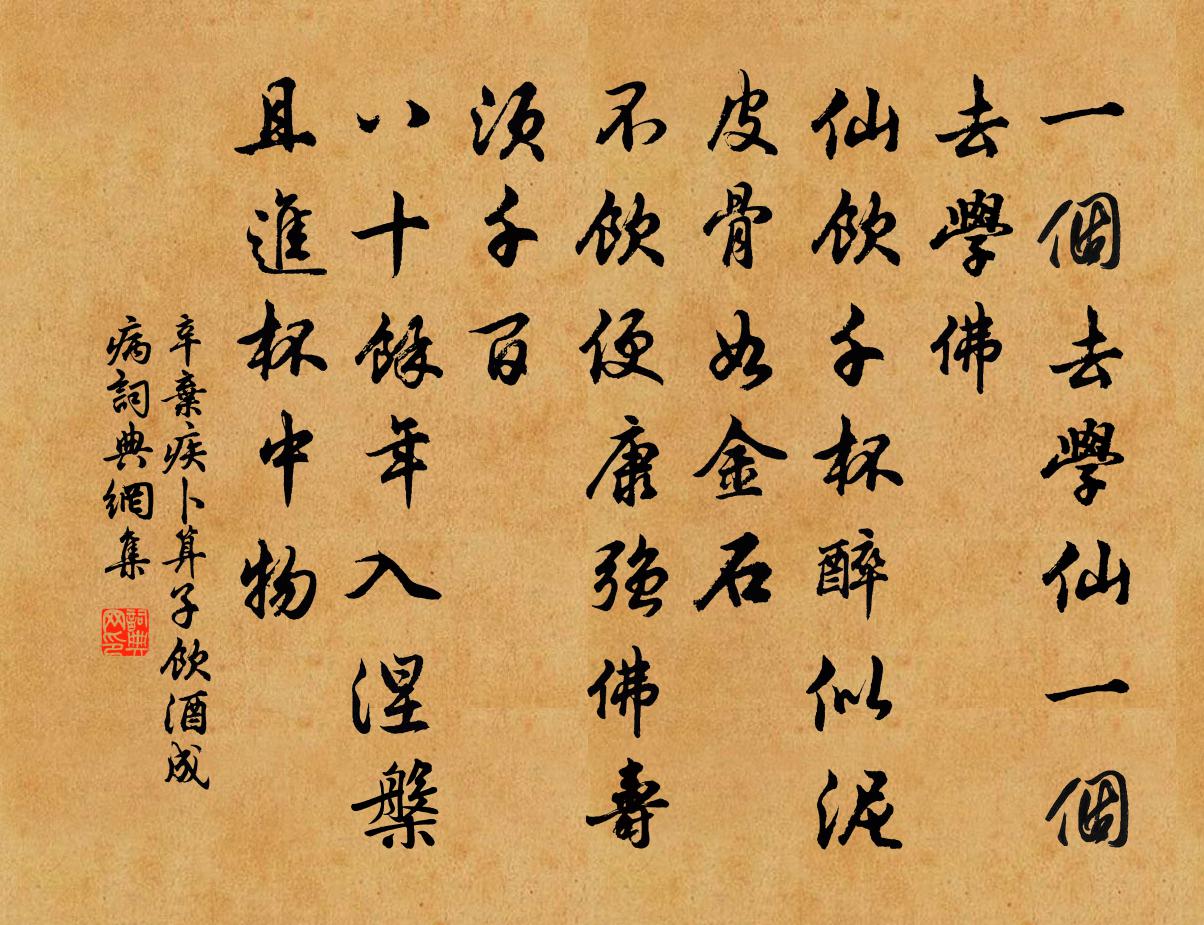 一個去學仙一個
去學佛
仙飲千杯醉似泥
皮骨如金石
不飲便康強佛壽
須千百
八十餘年入涅槃
且進杯中物
辛棄疾卜算子飲酒成
病詞典網集
詞典网印